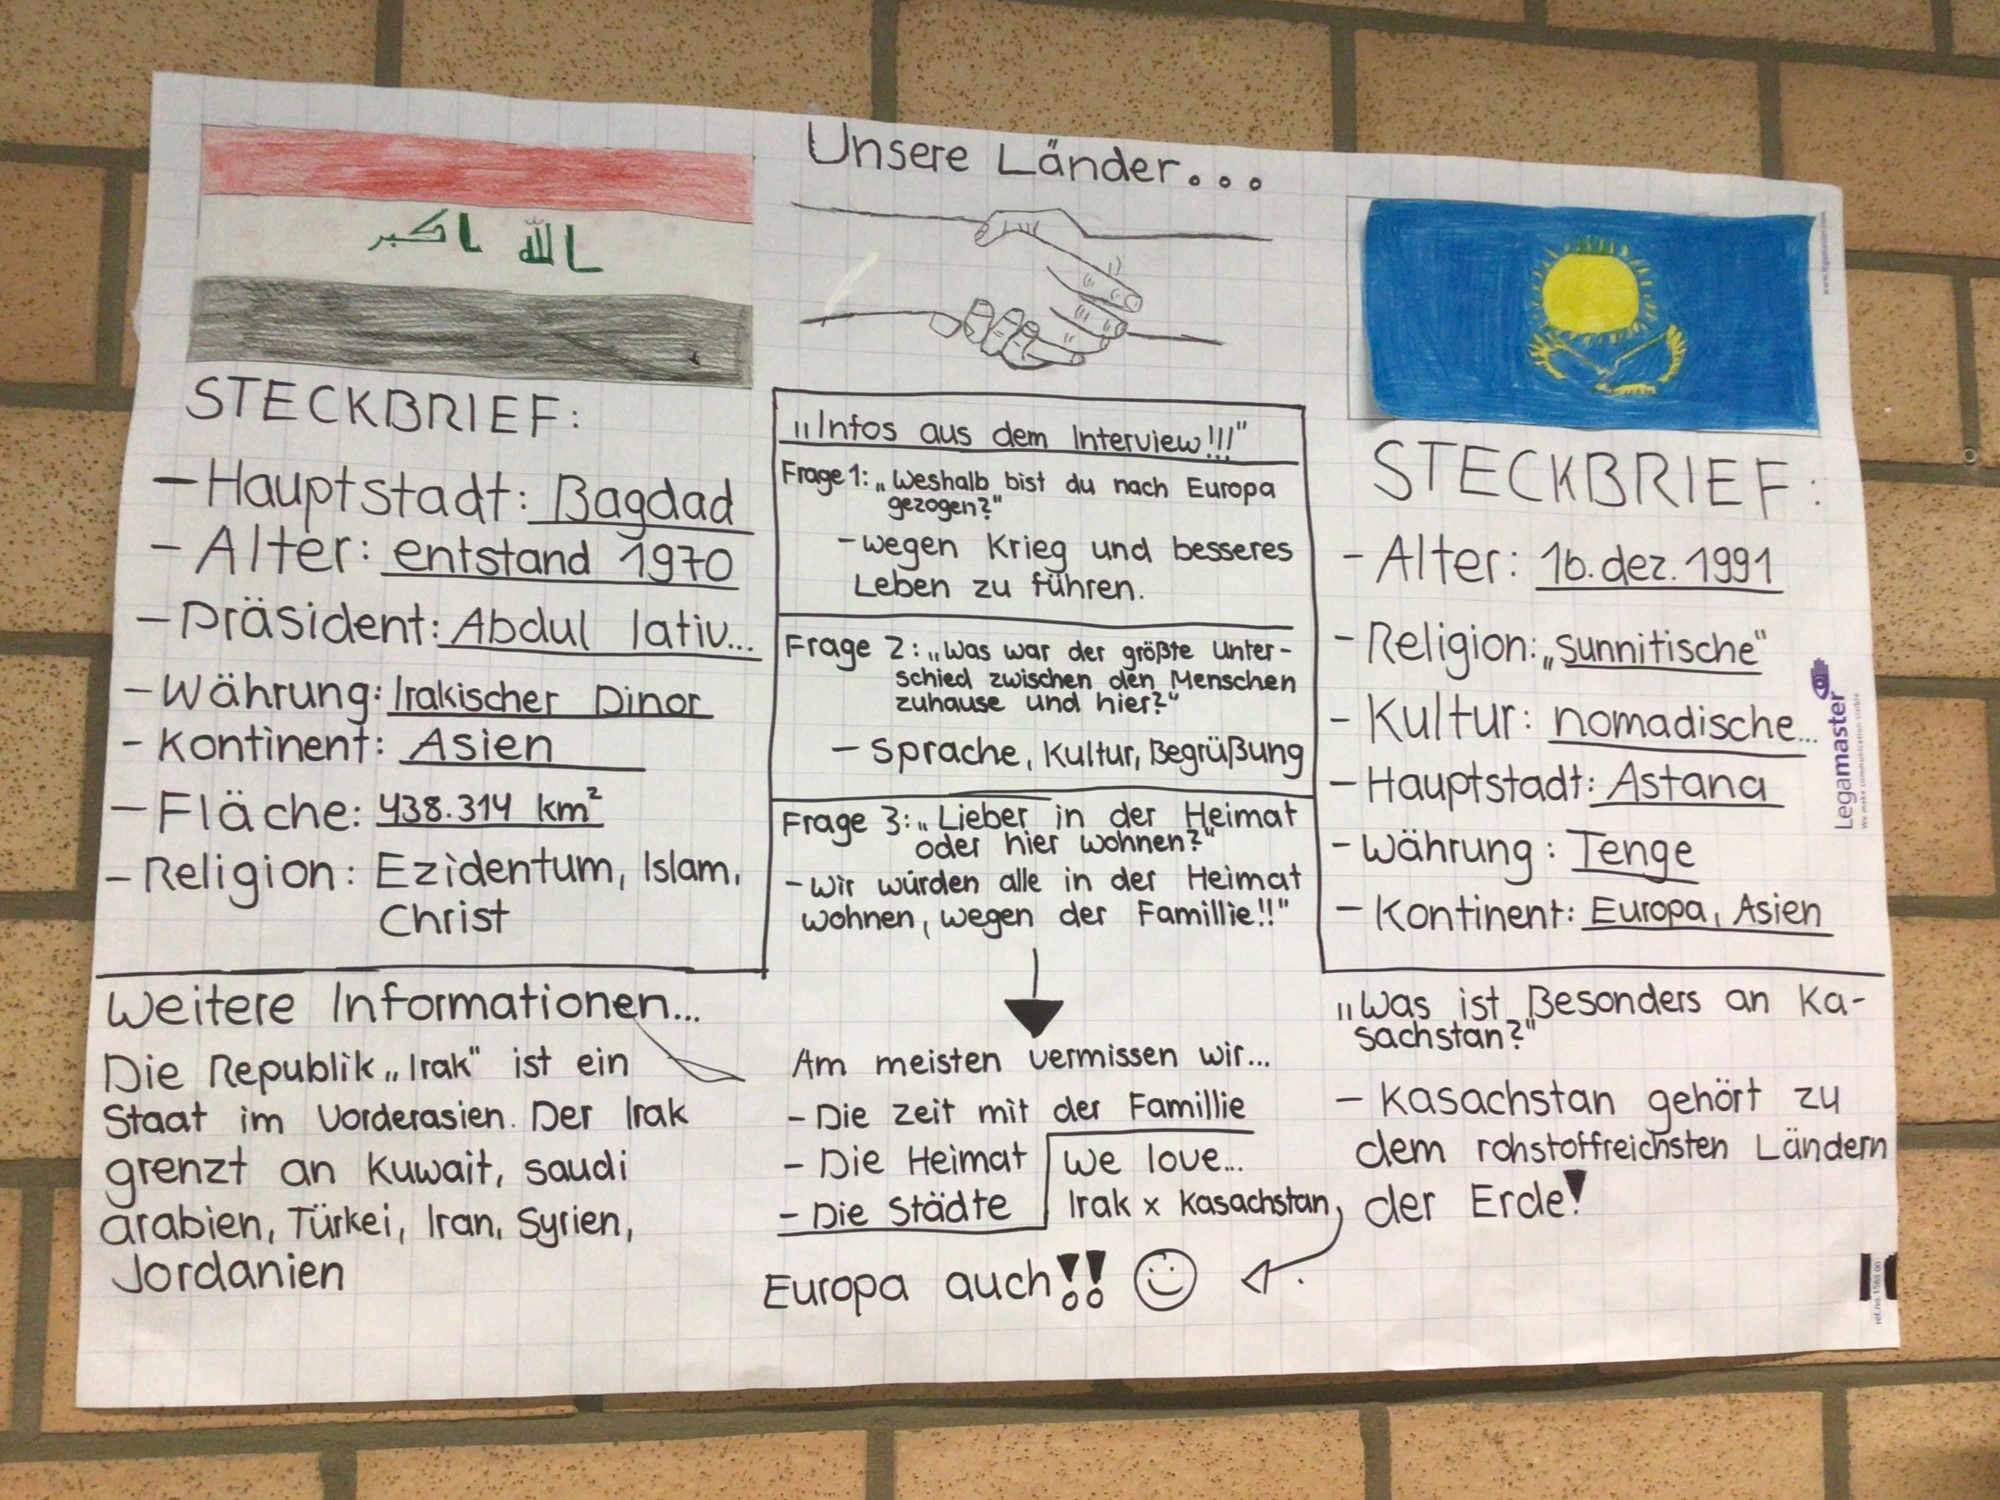 Unsere Länder...
الله اكبر
STECKBRIEF:
- Hauptstadt: Bagdad
- Alter: entstand 1970
- Präsident: Abdul lativ...
- Währung: Irakischer Dinor
- Kontinent: Asien
- Fläche: 438.314 km²
- Religion: Ezidentum, Islam,
Christ
Weitere Informationen...
Die Republik „Irak" ist ein
Staat im Vorderasien. Der Irak
grenzt an Kuwait, saudi
arabien, Türkei, Iran, Syrien,
Jordanien
„Infos aus dem Interview!!!"
Frage 1: „Weshalb bist du nach Europa
gezogen?"
- wegen Krieg und besseres
Leben zu führen.
Frage 2: „Was war der größte Unter-
schied zwischen den Menschen
zuhause und hier?"
- Sprache, Kultur, Begrüßung
Frage 3: „Lieber in der Heimat
oder hier wohnen?"
- Wir würden alle in der Heimat
wohnen, wegen der Famillie!!"
Am meisten vermissen wir...
- Die zeit mit der Famillie
- Die Heimat
- Die Städte
We love...
Irak x Kasachstan,
Europa auch!!
STECKBRIEF:
- Alter: 16. dez. 1991
- Religion: „Sunnitische"
- Kultur: nomadische...
- Hauptstadt: Astana
- Währung: Tenge
- Kontinent: Europa, Asien
„Was ist Besonders an Ka-
sachstan?"
- Kasachstan gehört zu
dem rohstoffreichsten Ländern
der Erde!
www.legamaster.com
Legamaster
We make communication visible